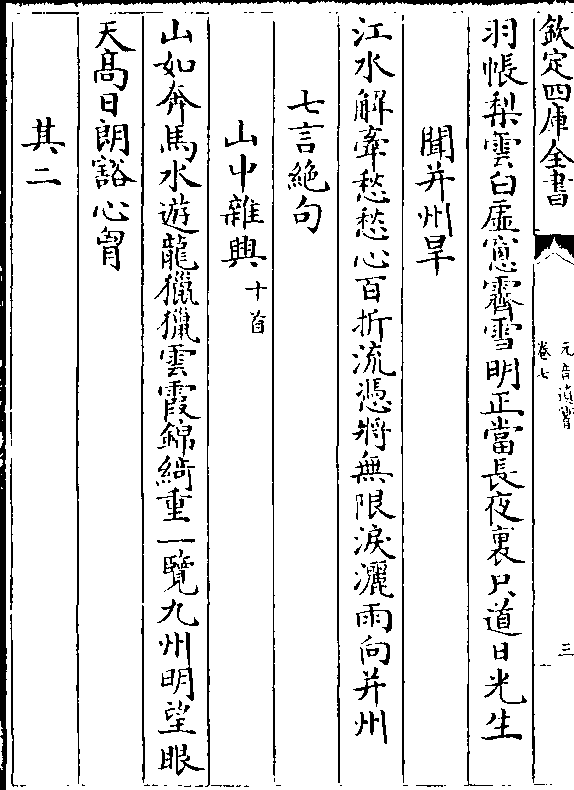 欽定四庫全書
元音遺響
卷七
三
羽帳梨雲白虛窻霽雪明正當長夜裏只道日光生
聞并州旱
江水解牽愁愁心百折流憑將無限淚灑雨向并州
七言絶句
山中雜興十首
山如奔馬水遊龍獵獵雲霞錦綺重一覽九州明望眼
天髙日朗豁心胷
其二